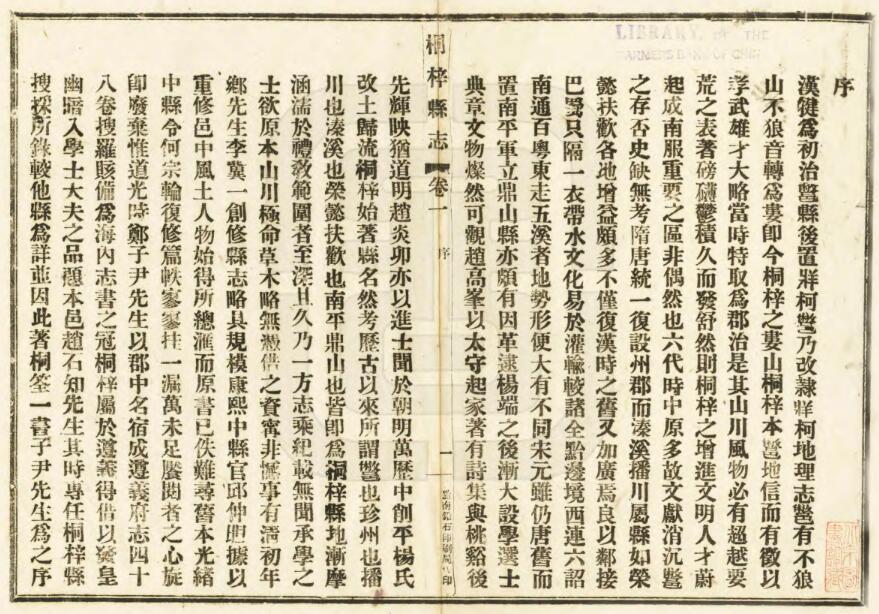 序
漢犍爲初治鄨縣後置牂柯鄨乃改隸牂柯地理志鄨有不狼
山不狼音轉爲婁卽今桐梓之婁山桐梓本鄨地信而有徵以
孝武雄才大略當時特取爲郡治是其山川風物必有超越要
荒之表著磅礴鬱積久而發舒然則桐梓之增進文明人才蔚
起成南服重要之區非偶然也六代時中原多故文獻消沉鄨
之存否史缺無考隋唐統一復設州郡而溱溪播川屬縣如榮
懿扶歡各地增益頗多不僅復漢時之舊又加廣焉良以鄰接
巴蜀只隔一衣帶水文化易於灌輸較諸全黔邊境西連六詔
南通百粵東走五溪者地勢形便大有不同宋元雖仍唐舊而
置南平軍立鼎山縣亦頗有因革逮楊端之後漸大設學選士
典章文物燦然可觀趙高峯以太守起家著有詩集與桃谿後
桐梓縣志 卷一 序 一
先輝映猶道明趙炎卯亦以進士聞於朝明萬歷中削平楊氏
改土歸流桐梓始著縣名然考歷古以來所謂鄨也珍州也播
川也溱溪也榮懿扶歡也南平鼎山也皆卽爲桐梓縣地漸摩
涵濡於禮敎範圍者至深且久乃一方志乘紀載無聞承學之
士欲原本山川極命草木略無憑借之資寧非憾事有淸初年
鄕先生李冀一創修縣志略具規模康熙中縣官邱仲䏒據以
重修邑中風土人物始得所總滙而原書已佚難尋舊本光緖
中縣令何宗輪復修篇帙寥寥挂一漏萬未足饜閱者之心旋
卽廢棄惟道光時鄭子尹先生以郡中名宿成遵義府志四十
八卷搜羅賅備爲海內志書之冠桐梓屬於遵義得借以發皇
幽暗入學士大夫之品題本邑趙石知先生其時專任桐梓縣
搜採所錄較他縣爲詳並因此著桐筌一書子尹先生爲之序
LIBRARY OF THE
FARMERS BANK OF CHINA